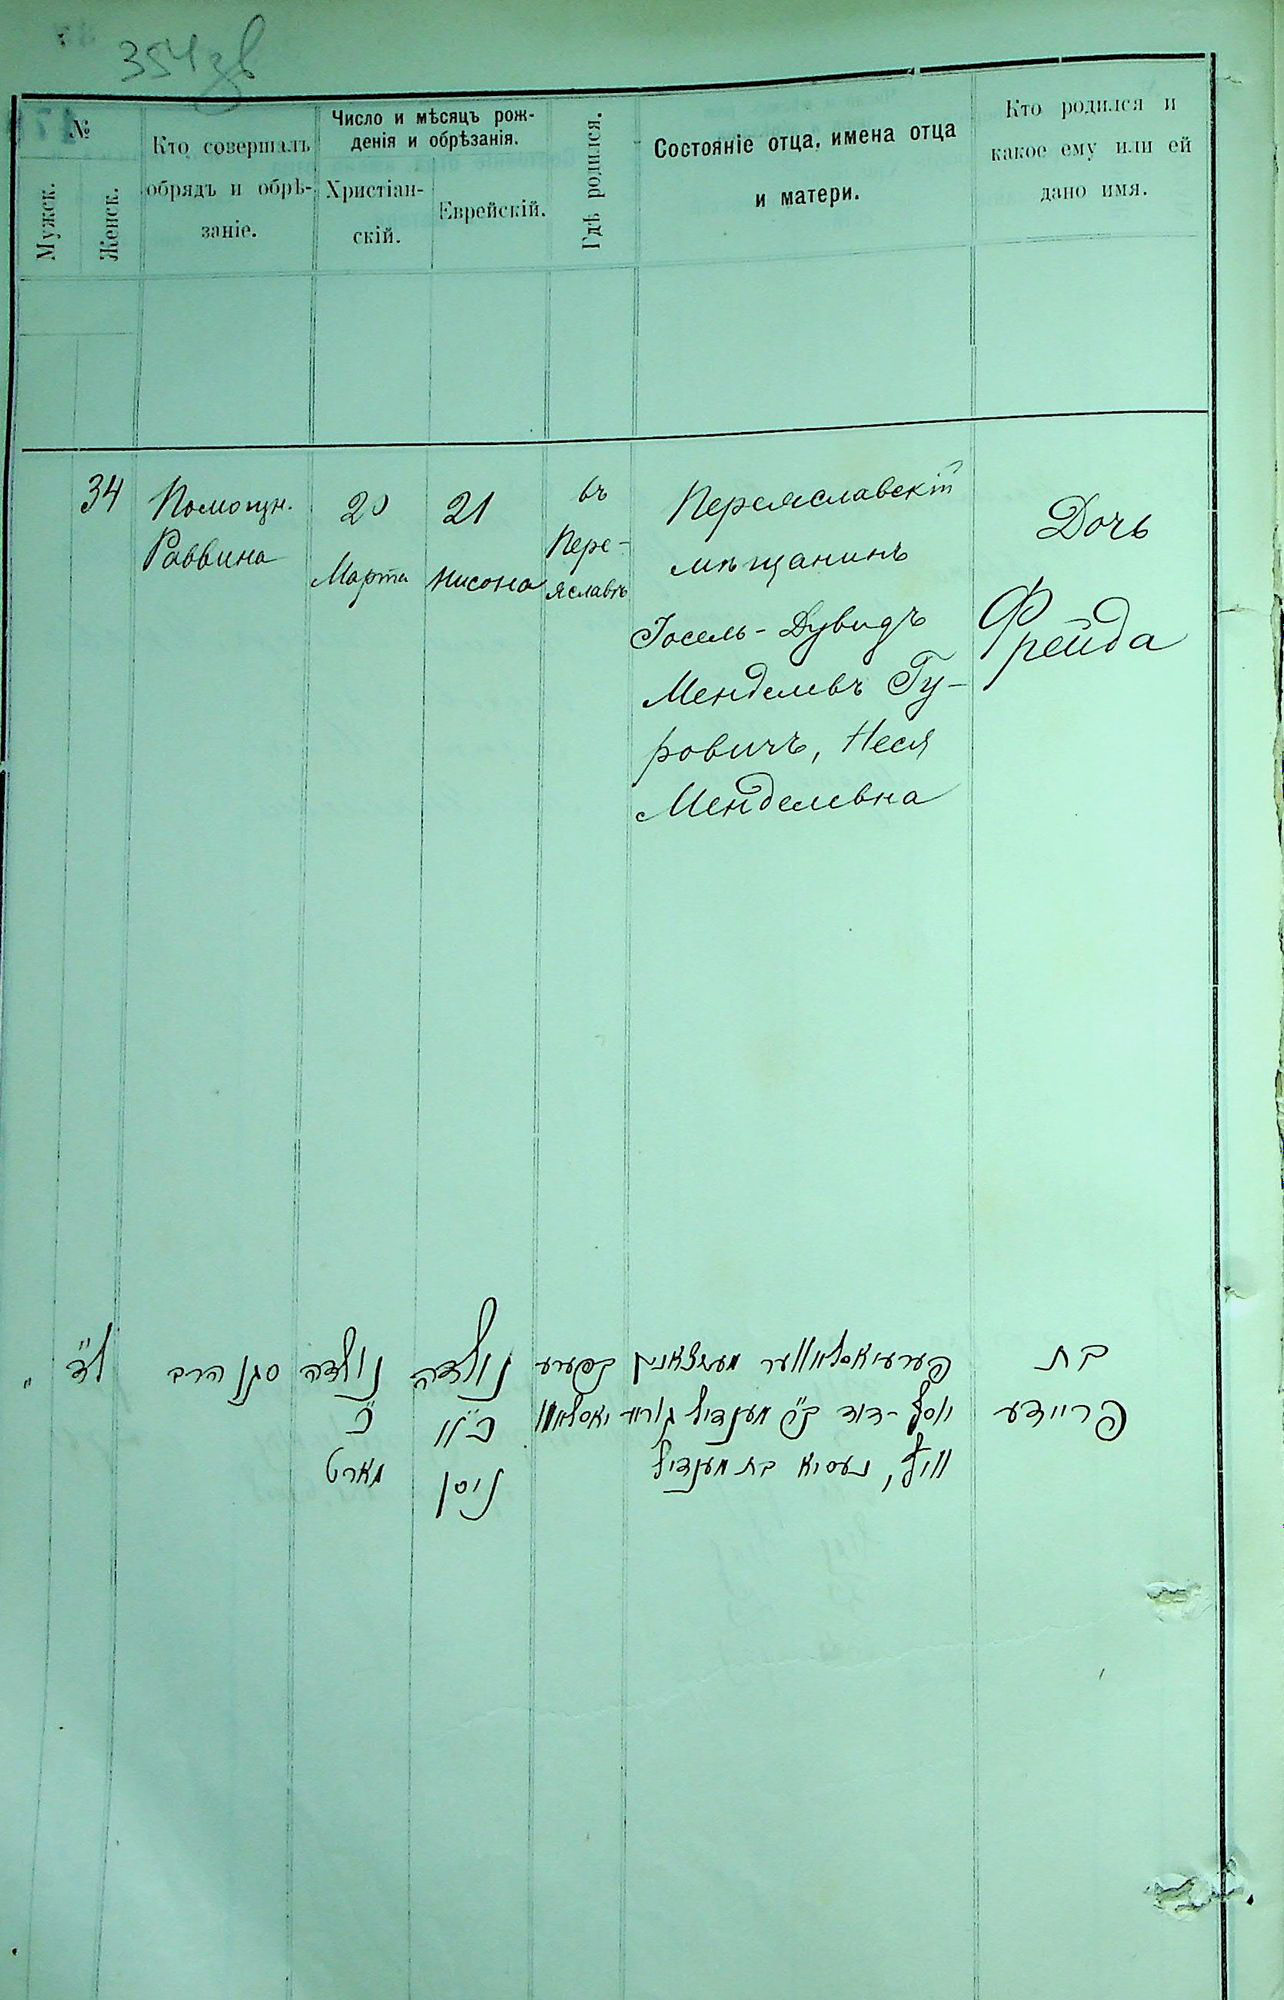 354 зв
№
Мужск.
Женск.
Кто совершалъ
обрядъ и обрѣ-
заніе.
Число и мѣсяцъ рож-
денія и обрѣзанія.
Христіан-
скій.
Еврейскій.
Гдѣ родился.
Состояніе отца, имена отца
и матери.
Кто родился и
какое ему или ей
дано имя.
34
Помощн.
Раввина
20
Марта
21
Нисона
въ
Пере-
яславѣ
Переяславскій
мѣщанинъ
Іосель-Дувидъ
Менделевъ Гу-
ровичъ, Неся
Менделевна
Дочь
Фрейда
ל״ד
סגן הרב
נולדה
כ׳
מארט
נולדה
ניסן
בפערע
יאסלאוו
פערעיאסלאווער מעשצאנין
יוסף-דוד ב״ר מענדיל גורא
וויץ, נעסיא בת מענדיל
בת
פריידע